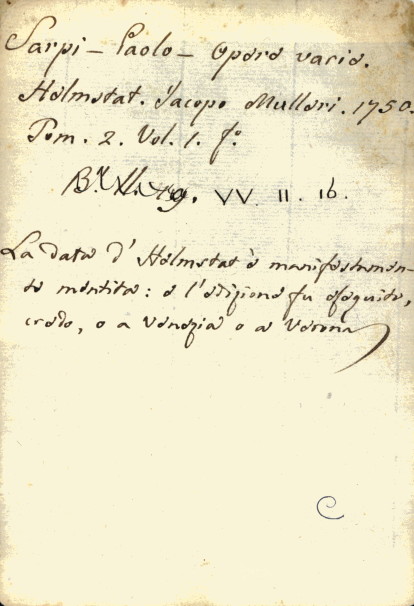 Sarpi - Paolo - Opere varie.
Helmstat. Jacopo Mulleri. 1750.
Tom. 2. Vol. 1. fº.
VV. II. 16.
La data d' Helmstat è manifestamen-
te mentita: e l'edizione fu eseguita,
credo, o a Venezia o a Verona
C